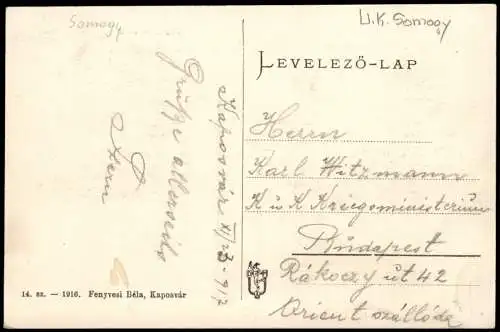 Somogy
U.K. Somogy
LEVELEZŐ-LAP
Kaposvár XI/23-917
Grüsse allerseits
Herrn
Karl Witzmann
K u K Kriegsministerium
Budapest
Rákoczy út 42
Orient szálloda
14. sz. — 1916. Fenyvesi Béla, Kaposvár